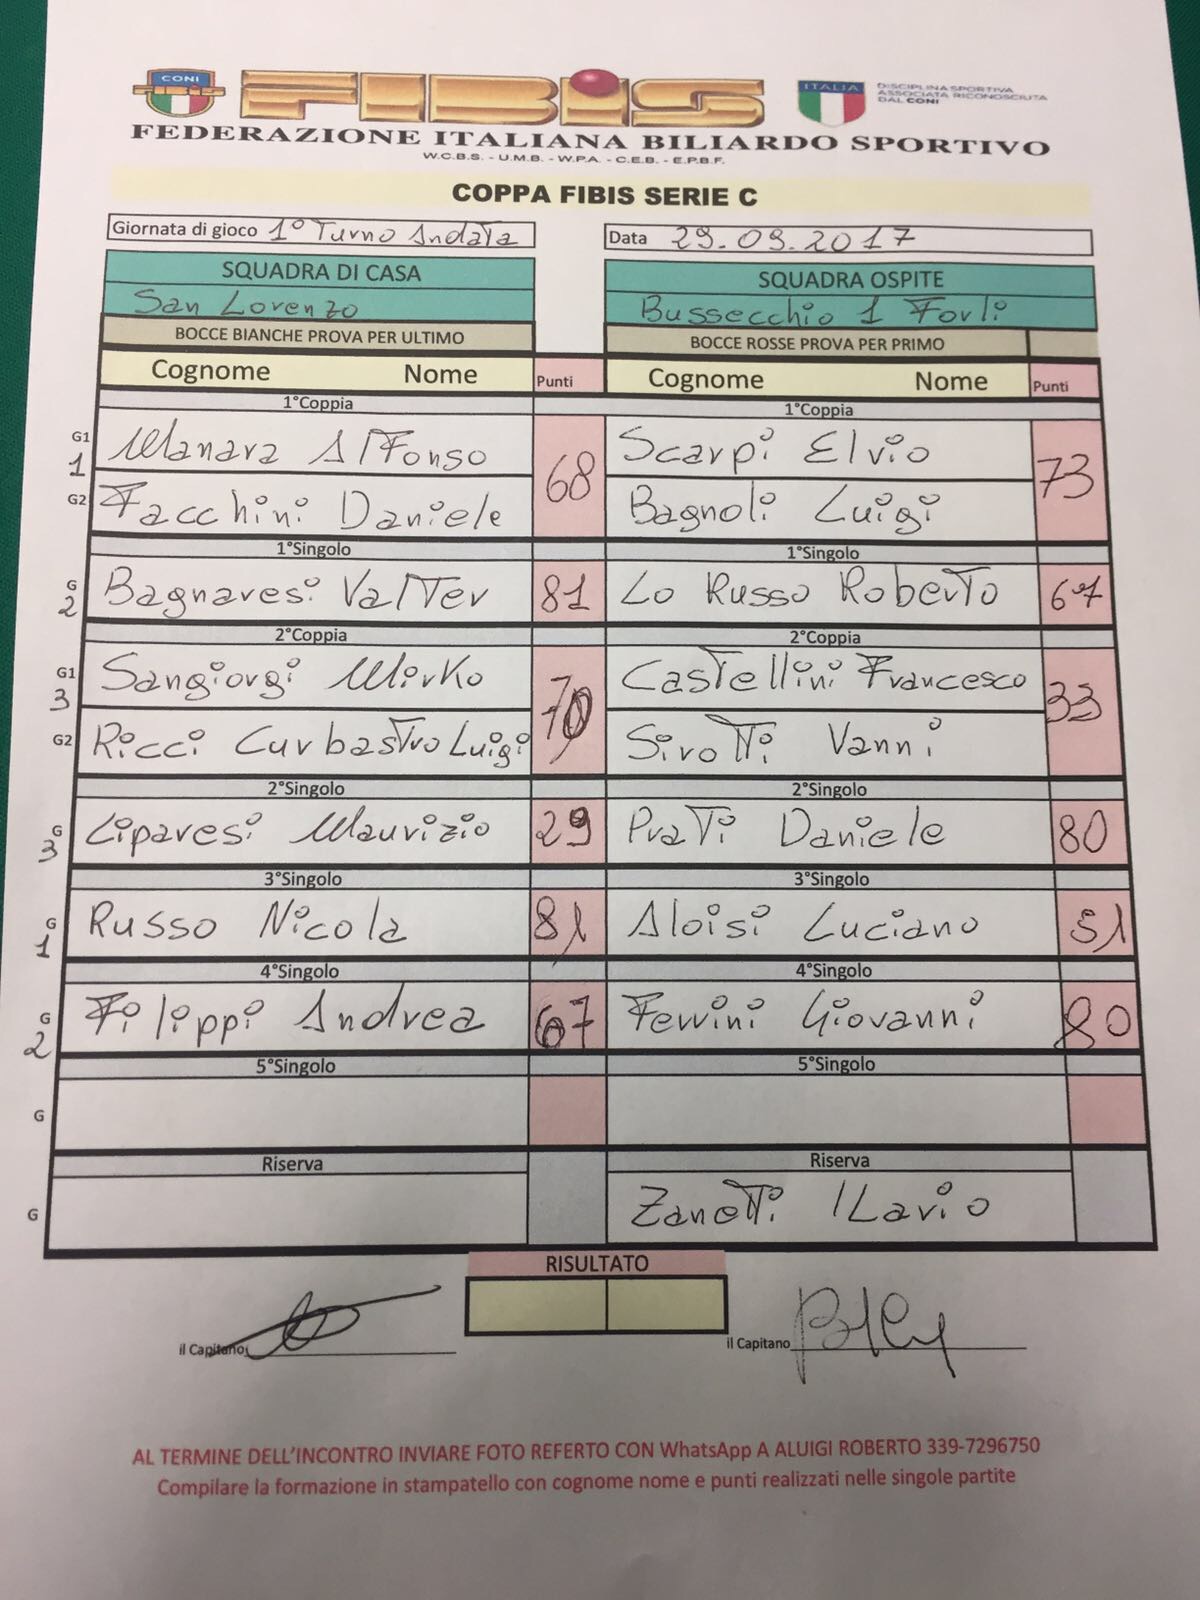 CONI
FIBIS
ITALIA
DISCIPLINA SPORTIVA
ASSOCIATA RICONOSCIUTA
DAL CONI
FEDERAZIONE ITALIANA BILIARDO SPORTIVO
W.C.B.S. - U.M.B. - W.P.A. - C.E.B. - E.P.B.F.
COPPA FIBIS SERIE C
Giornata di gioco 1° Turno Andata Data 29.09.2017
SQUADRA DI CASA SQUADRA OSPITE
San Lorenzo Bussecchio 1 Forlì
BOCCE BIANCHE PROVA PER ULTIMO BOCCE ROSSE PROVA PER PRIMO
Cognome Nome Punti Cognome Nome Punti
1°Coppia 1°Coppia
G1 1 Manara Alfonso 68 Scarpi Elvio 73
G2 Facchini Daniele Bagnoli Luigi
1°Singolo 1°Singolo
G 2 Bagnaresi Valter 81 Lo Russo Roberto 67
2°Coppia 2°Coppia
G1 3 Sangiorgi Mirko 70 Castellini Francesco 33
G2 Ricci Curbastro Luigi Sirotti Vanni
2°Singolo 2°Singolo
G 3 Liparesi Maurizio 29 Prati Daniele 80
3°Singolo 3°Singolo
G 1 Russo Nicola 81 Aloisi Luciano 51
4°Singolo 4°Singolo
G 2 Filippi Andrea 67 Ferrini Giovanni 80
5°Singolo 5°Singolo
G
Riserva Riserva
G Zanotti Ilario
RISULTATO
il Capitano il Capitano
AL TERMINE DELL'INCONTRO INVIARE FOTO REFERTO CON WhatsApp A ALUIGI ROBERTO 339-7296750
Compilare la formazione in stampatello con cognome nome e punti realizzati nelle singole partite